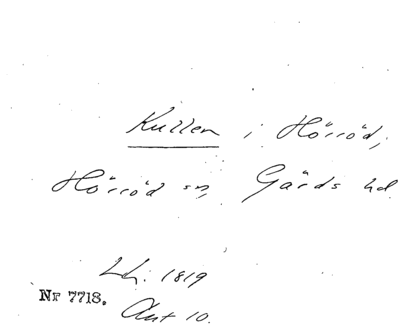 Kullen i Hörröd,
Hörröd sn, Gärds hd
Lh. 1819
Nr 7718.
Akt 10.